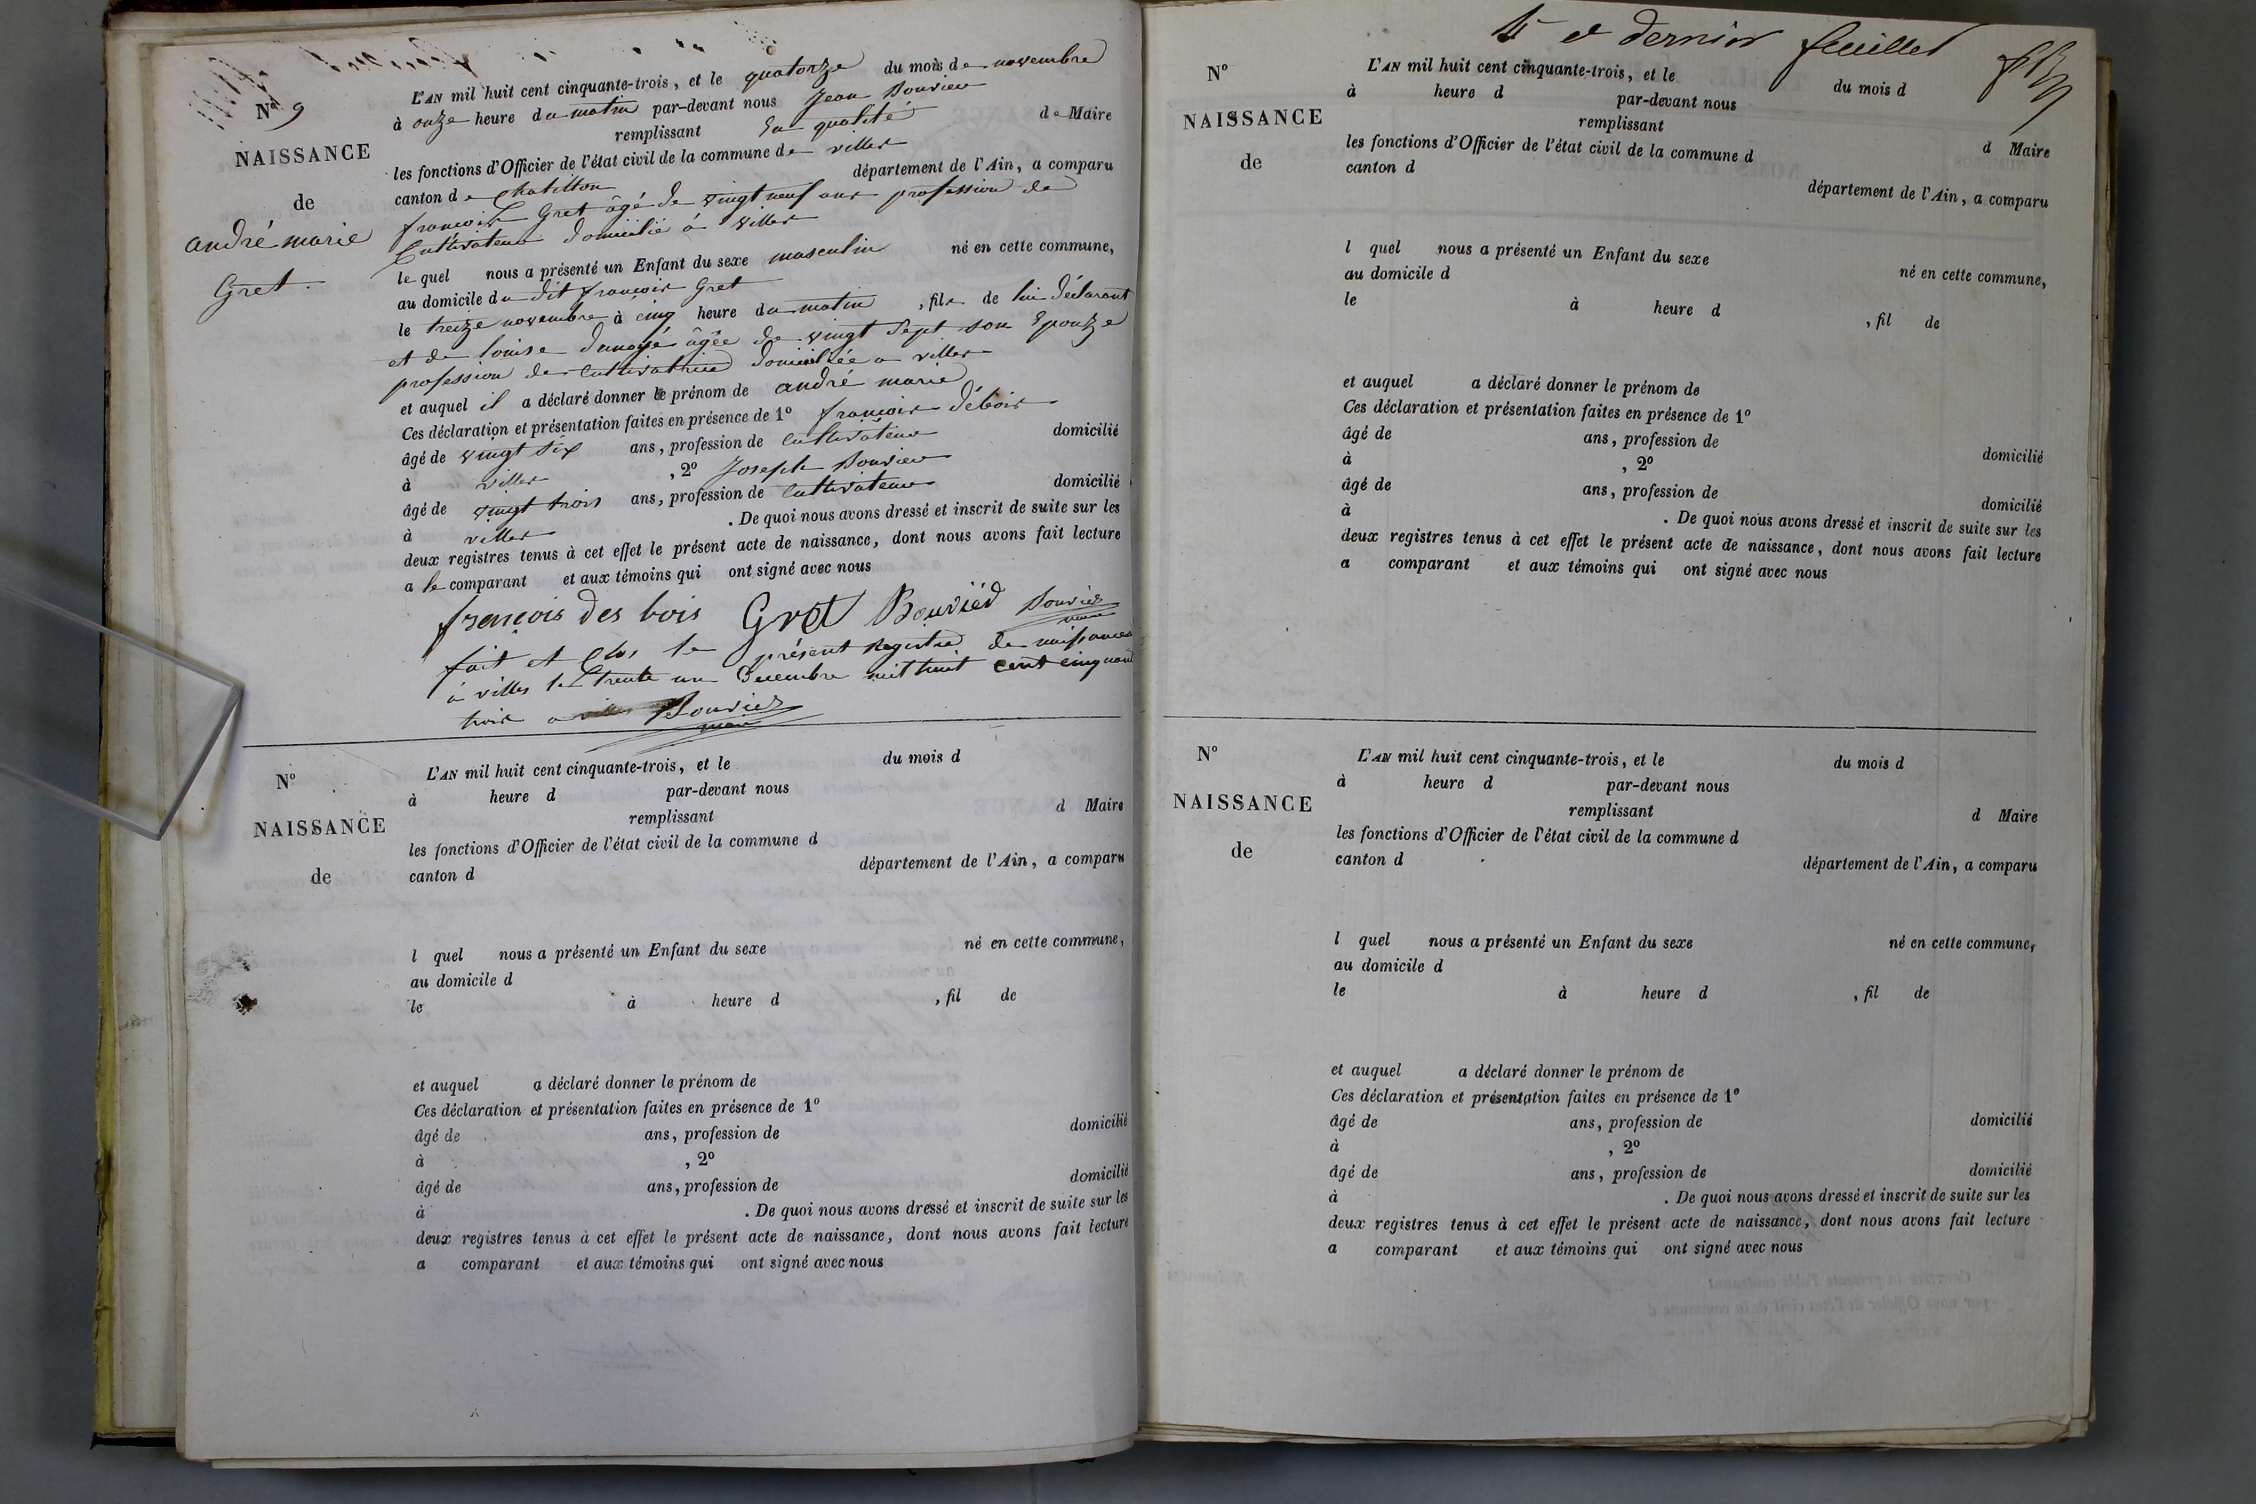 N° 9
NAISSANCE
de
andré marie
Gret.
L'AN mil huit cent cinquante-trois, et le quatorze du mois de novembre
à onze heure du matin par-devant nous Jean Bouvier
remplissant En qualité de Maire
les fonctions d'Officier de l'état civil de la commune de villes
canton de Chatillon département de l'Ain, a comparu
françois Gret âgé de vingt neuf ans profession de
Cultivateur domicilié à villes
le quel nous a présenté un Enfant du sexe masculin né en cette commune,
au domicile du dit françois Gret
le treize novembre à cinq heure du matin, fils de lui déclarant
et de louise âgée de vingt sept son Epouze
profession de Cultivatrice domiciliée a villes
et auquel il a déclaré donner le prénom de andré marie
Ces déclaration et présentation faites en présence de 1° françois débois
âgé de vingt six ans, profession de Cultivateur domicilié
à villes, 2° Joseph Bouvier
âgé de vingt trois ans, profession de Cultivateur domicilié
à villes. De quoi nous avons dressé et inscrit de suite sur les
deux registres tenus à cet effet le présent acte de naissance, dont nous avons fait lecture
a le comparant et aux témoins qui ont signé avec nous
françois des bois Gret Bouvied Bouvier
maire
fait et clos le présent Registre de naissances
à villes le trente un Decembre mil huit cent cinquante
trois a Bouvier
maire
N°
NAISSANCE
de
L'AN mil huit cent cinquante-trois, et le du mois d
à heure d par-devant nous
remplissant d Maire
les fonctions d'Officier de l'état civil de la commune d
canton d département de l'Ain, a comparu
l quel nous a présenté un Enfant du sexe né en cette commune,
au domicile d
le à heure d , fil de
et auquel a déclaré donner le prénom de
Ces déclaration et présentation faites en présence de 1°
âgé de ans, profession de domicilié
à , 2°
âgé de ans, profession de domicilié
à . De quoi nous avons dressé et inscrit de suite sur les
deux registres tenus à cet effet le présent acte de naissance, dont nous avons fait lecture
a comparant et aux témoins qui ont signé avec nous
et dernier feuillet
N°
NAISSANCE
de
L'AN mil huit cent cinquante-trois, et le du mois d
à heure d par-devant nous
remplissant d Maire
les fonctions d'Officier de l'état civil de la commune d
canton d département de l'Ain, a comparu
l quel nous a présenté un Enfant du sexe né en cette commune,
au domicile d
le à heure d , fil de
et auquel a déclaré donner le prénom de
Ces déclaration et présentation faites en présence de 1°
âgé de ans, profession de domicilié
à , 2°
âgé de ans, profession de domicilié
à . De quoi nous avons dressé et inscrit de suite sur les
deux registres tenus à cet effet le présent acte de naissance, dont nous avons fait lecture
a comparant et aux témoins qui ont signé avec nous
N°
NAISSANCE
de
L'AN mil huit cent cinquante-trois, et le du mois d
à heure d par-devant nous
remplissant d Maire
les fonctions d'Officier de l'état civil de la commune d
canton d département de l'Ain, a comparu
l quel nous a présenté un Enfant du sexe né en cette commune,
au domicile d
le à heure d , fil de
et auquel a déclaré donner le prénom de
Ces déclaration et présentation faites en présence de 1°
âgé de ans, profession de domicilié
à , 2°
âgé de ans, profession de domicilié
à . De quoi nous avons dressé et inscrit de suite sur les
deux registres tenus à cet effet le présent acte de naissance, dont nous avons fait lecture
a comparant et aux témoins qui ont signé avec nous